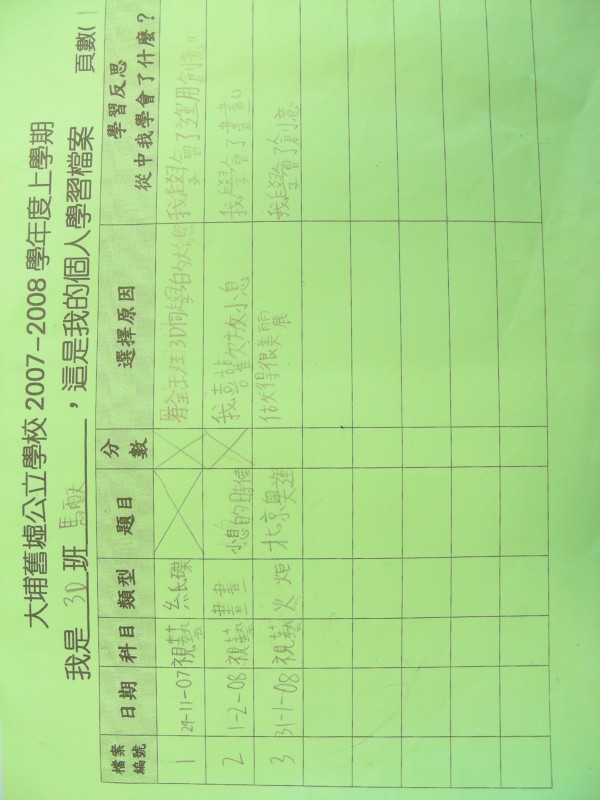 大埔舊墟公立學校 2007-2008 學年度上學期
我是 3D 班 馬 ，這是我的個人學習檔案 頁數( 1
檔案編號 日期 科目 類型 題目 分數 選擇原因 學習反思 從中我學會了什麼？
1 29-11-07 視藝 紙碟 有全班3D同學的 我學會了運用創意。
2 1-2-08 視藝 畫畫 小息的時候 我喜歡放小息 我學會了畫畫。
3 31-1-08 視藝 火炬 北京奧運 做得很美麗 我學會了創意